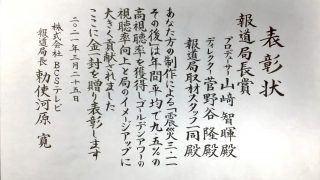 表彰状
報道局長賞
プロデューサー 山﨑智暉殿
ディレクター 菅野谷隆殿
報道局取材スタッフ一同殿
あなた方の制作による「震災三・一一
その後」は年間平均で九・五%の
高視聴率を獲得しゴールデンアワーの
視聴率向上と局のイメージアップに
大きく貢献されました
ここに金一封を贈り表彰します
二〇二一年三月二十五日
株式会社BCSテレビ
報道局長 勅使河原寛